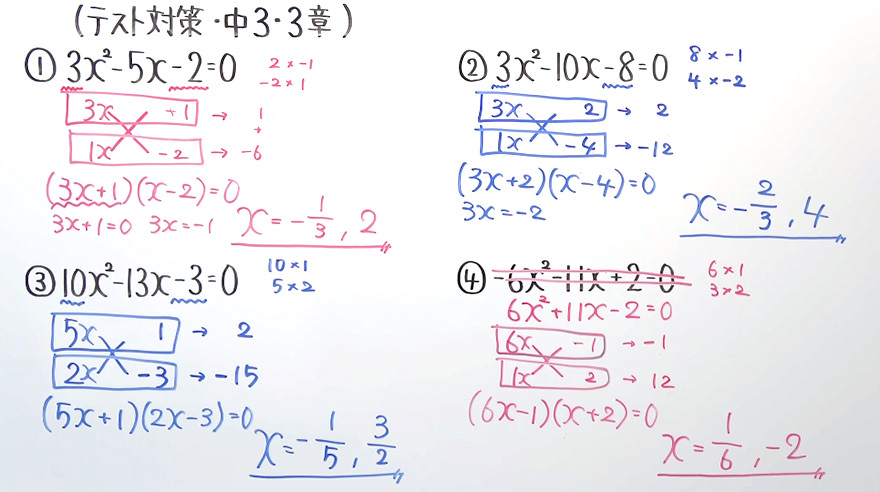 (テスト対策・中3・3章)
① 3x²-5x-2=0
2×-1
-2×1
3x +1 → 1
+
1x -2 → -6
(3x+1)(x-2)=0
3x+1=0 3x=-1
x=-1/3, 2
② 3x²-10x-8=0
8×-1
4×-2
3x 2 → 2
1x -4 → -12
(3x+2)(x-4)=0
3x=-2
x=-2/3, 4
③ 10x²-13x-3=0
10×1
5×2
5x 1 → 2
2x -3 → -15
(5x+1)(2x-3)=0
x=-1/5, 3/2
④ -6x²-11x+2=0
6×1
3×2
6x²+11x-2=0
6x -1 → -1
1x 2 → 12
(6x-1)(x+2)=0
x=1/6, -2